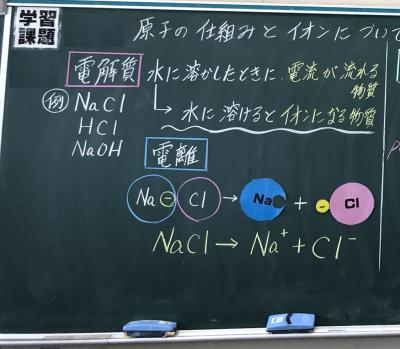 学習
課題
原子の仕組みとイオンについて
電解質 水に溶かしたときに電流が流れる
物質
例 NaCl
→ 水に溶けるとイオンになる物質
HCl
NaOH
電離
Na - Cl → Na + - Cl
NaCl → Na⁺ + Cl⁻